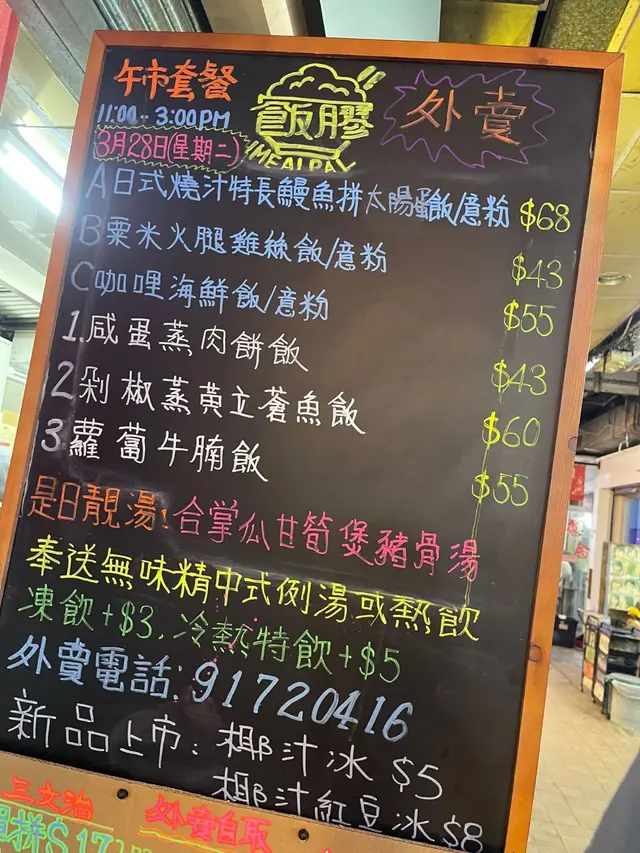 午市套餐
11:00 - 3:00PM
3月28日(星期二)
飯膠
MEALPAY
外賣
A日式燒汁特長鰻魚拼太陽蛋飯/意粉 $68
B粟米火腿雞絲飯/意粉 $43
C咖哩海鮮飯/意粉 $55
1.咸蛋蒸肉餅飯 $43
2剁椒蒸黄立蒼魚飯 $60
3蘿蔔牛腩飯 $55
是日靚湯:合掌瓜甘筍煲豬骨湯
奉送無味精中式例湯或熱飲
凍飲+$3,冷熱特飲+$5
外賣電話:91720416
新品上市:椰汁冰 $5
椰汁紅豆冰 $8
三文治
外賣自取
拼$17